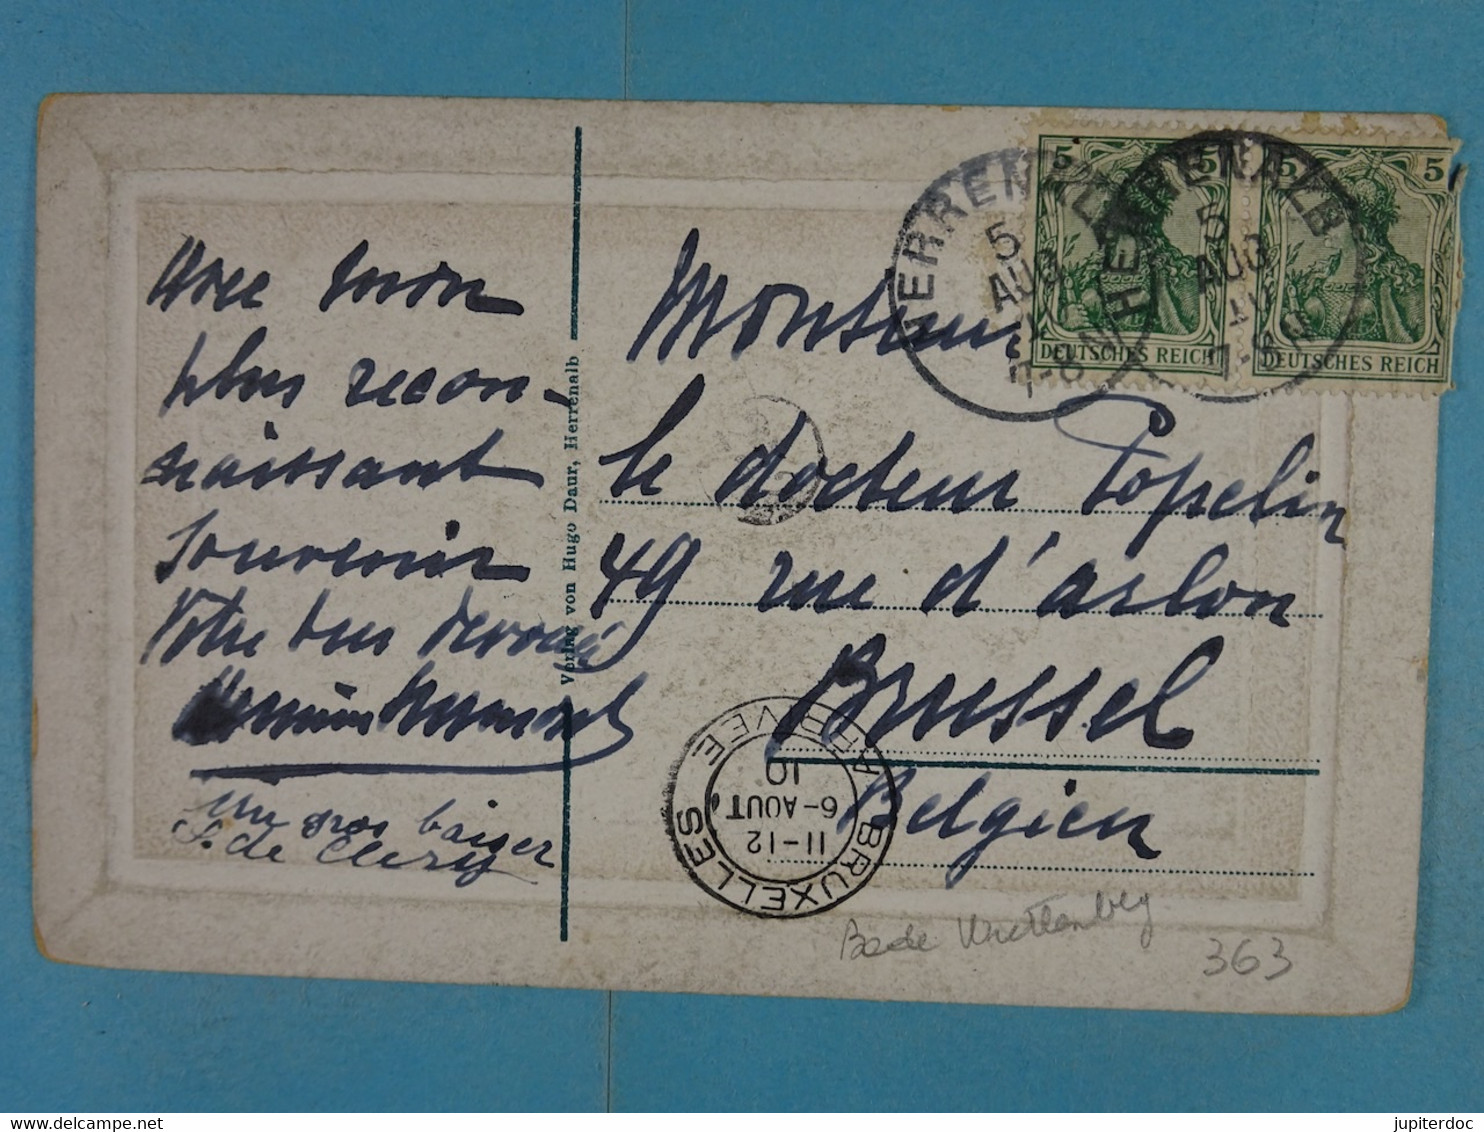 Avec mon
plus recon-
naissant
souvenir
Votre bien dévoué
Un gros baiser
S. de Clery
Verlag von Hugo Daur, Herrenalb
Monsieur
le docteur Popelin
49 rue d'arlon
Brussel
Belgien
HERRENALB
5
AUG
10
7-8 N
HERRENALB
5
AUG
10
7-8 N
5 5
DEUTSCHES REICH
5 5
DEUTSCHES REICH
BRUXELLES ARRIVEE
11-12
6-AOUT
10
Bade Wurttemberg
363
jupiterdoc